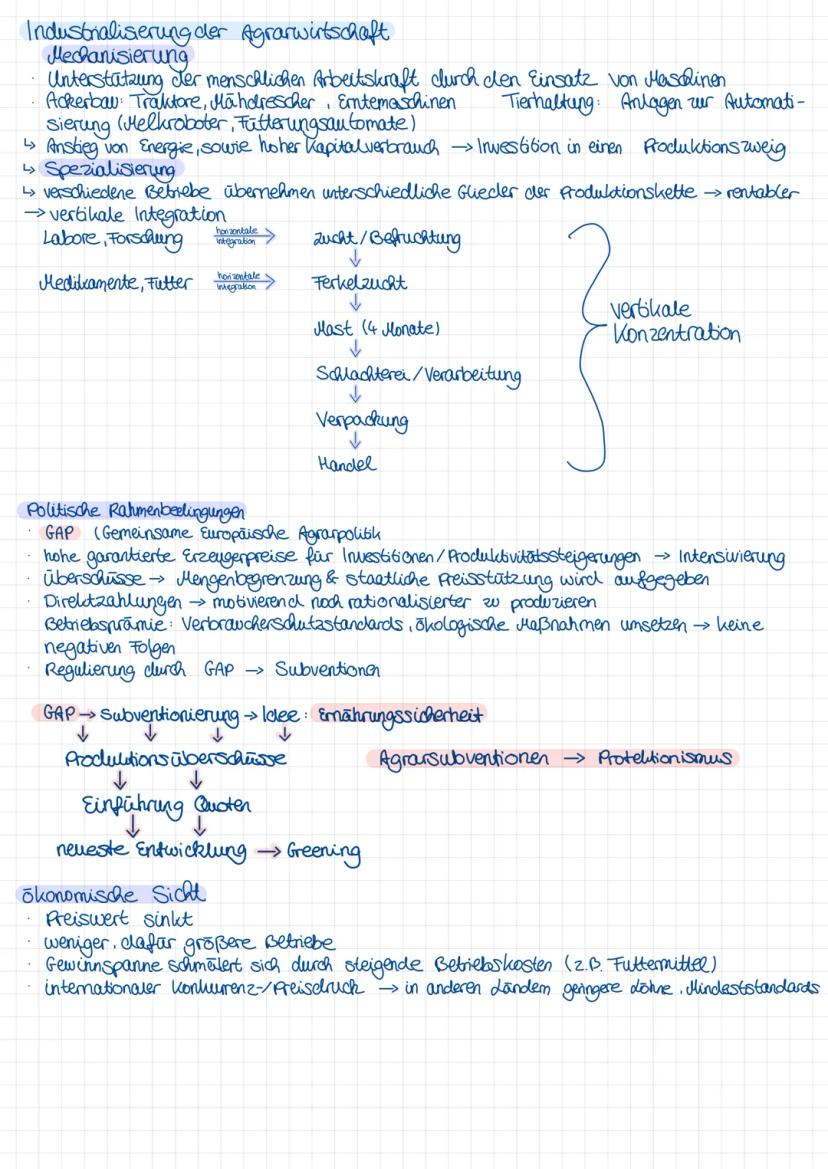 Industrialisierung der Agrarwirtschaft
Mechanisierung
· Unterstützung der menschlichen Arbeitskraft durch den Einsatz von Maschinen
· Ackerbau: Traktore, Mähdrescher, Erntemaschinen Tierhaltung: Anlagen zur Automati-
sierung (Melkroboter, Fütterungsautomate)
↳ Anstieg von Energie, sowie hoher Kapitalverbrauch → Investition in einen Produktionszweig
↳ Spezialisierung
↳ verschiedene Betriebe übernehmen unterschiedliche Glieder der Produktionskette → rentabler
→ vertikale Integration
Labore, Forschung horizontale Integration → Zucht/Befruchtung
↓
Medikamente, Futter horizontale Integration → Ferkelzucht
↓
Mast (4 Monate)
↓
Schlachterei/Verarbeitung
↓
Verpackung
↓
Handel
vertikale
Konzentration
Politische Rahmenbedingungen
· GAP (Gemeinsame Europäische Agrarpolitik
· hohe garantierte Erzeugerpreise für Investitionen/Produktivitätssteigerungen → Intensivierung
· Überschüsse → Mengenbegrenzung & staatliche Preisstützung wird aufgegeben
· Direktzahlungen → motivierend noch rationalisierter zu produzieren
Betriebsprämie: Verbraucherschutzstandards, ökologische Maßnahmen umsetzen → keine
negativen Folgen
· Regulierung durch GAP → Subventionen
GAP → Subventionierung → Idee: Ernährungssicherheit
↓ ↓ ↓ ↓
Produktionsüberschüsse Agrarsubventionen → Protektionismus
↓ ↓
Einführung Quoten
↓ ↓
neueste Entwicklung → Greening
ökonomische Sicht
· Preiswert sinkt
· weniger, dafür größere Betriebe
· Gewinnspanne schmälert sich durch steigende Betriebskosten (z.B. Futtermittel)
· internationaler Konkurrenz-/Preisdruck → in anderen Ländern geringere Löhne, Mindeststandards